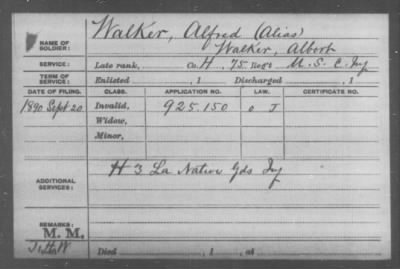 NAME OF SOLDIER: Walker, Alfred (Alias)
Walker, Albert
SERVICE: Late rank, Co. H, 75 Reg't U. S. C. Inf
TERM OF SERVICE: Enlisted , 1 Discharged , 1
DATE OF FILING. CLASS. APPLICATION NO. LAW. CERTIFICATE NO.
1890 Sept 20. Invalid, 925.150 J
Widow,
Minor,
ADDITIONAL SERVICES: H 3 La Native Gds Inf
REMARKS:
M. M.
Died , 1 , at